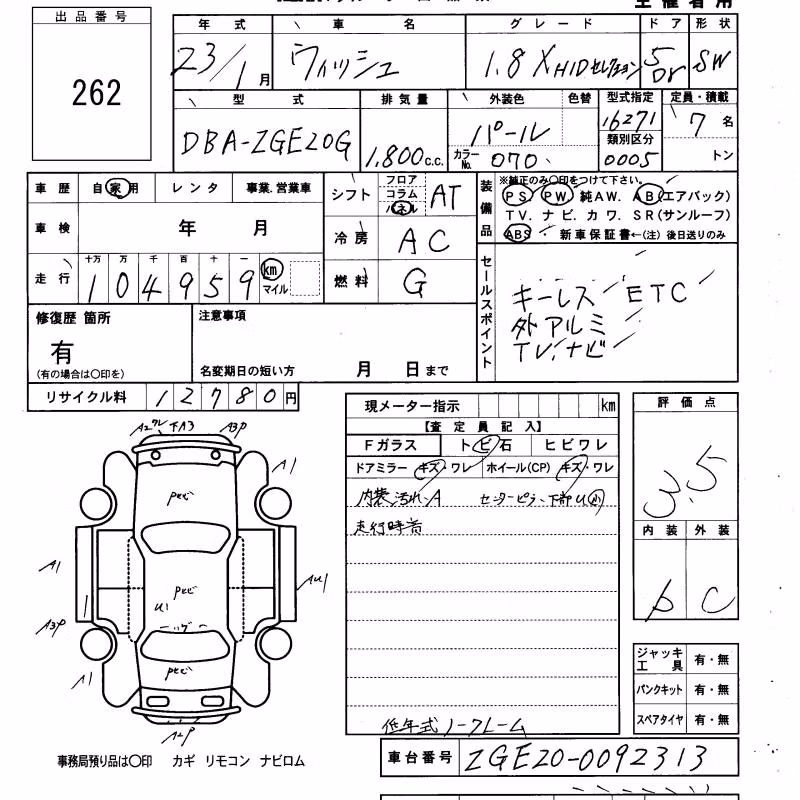 主催者用
出品番号
262
年式 車名 グレード ドア 形状
23/1月 ウィッシュ 1.8X HIDセレクション 5Dr SW
型式 排気量 外装色 色替 型式指定 定員・積載
DBA-ZGE20G 1,800c.c. パール 16271 7名
カラーNo. 070 類別区分 0005 トン
車歴 自家用 レンタ 事業.営業車
車検 年 月
走行 十万 万 千 百 十 一
104959 km マイル
シフト フロア コラム パネル AT
冷房 AC
燃料 G
装備品 ※純正のみ〇印をつけて下さい。
PS PW 純AW. AB(エアバック)
TV. ナビ. カワ. SR(サンルーフ)
ABS 新車保証書←(注)後日送りのみ
セールスポイント
キーレス ETC
外アルミ
TV,ナビ
修復歴 箇所 注意事項
有
(有の場合は〇印を) 名変期日の短い方 月 日まで
リサイクル料 12780円
現メーター指示 km
【査定員記入】
Fガラス トビ石 ヒビワレ
ドアミラー キズ・ワレ ホイール(CP) キズ・ワレ
内装汚れ.A センターピラー下部U小
走行時音
低年式ノークレーム
評価点
3.5
内装 外装
b C
ジャッキ工具 有・無
パンクキット 有・無
スペアタイヤ 有・無
A2ワレ 下A3 A3P
A1
Pとび
A1
Pとび
U1
AU1
A3P
Pとび
A1
A2P
事務局預り品は〇印 カギ リモコン ナビロム
車台番号 ZGE20-0092313